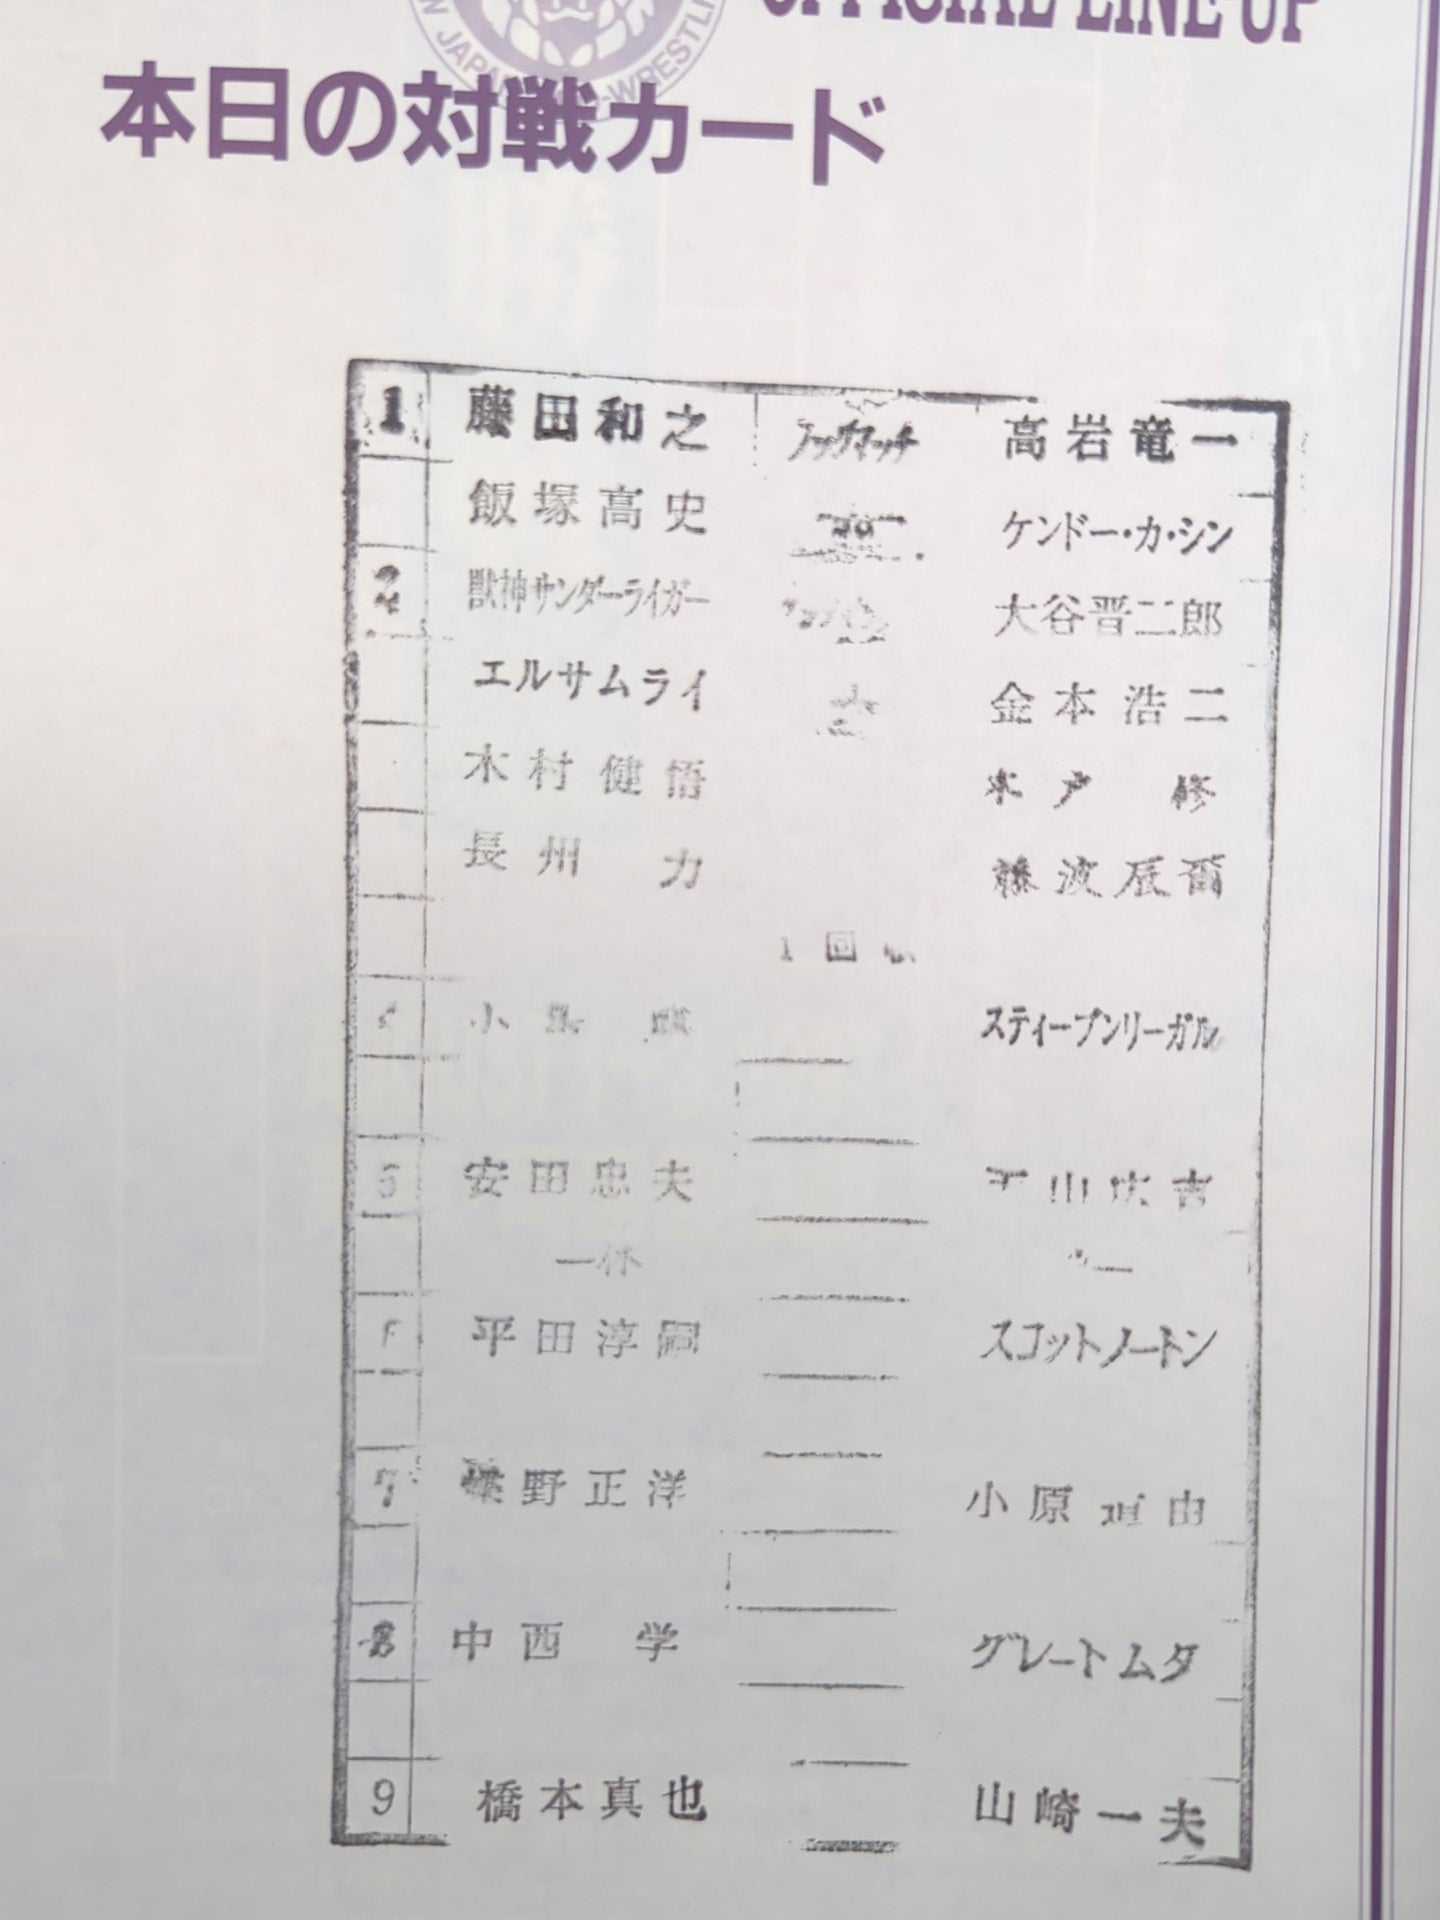 OFFICIAL LINE-UP
JAPAN -WRESTLI
本日の対戦カード
1 藤田和之 タッグマッチ 高岩竜一
飯塚高史 ケンドー・カ・シン
2 獣神サンダーライガー 大谷晋二郎
エルサムライ 金本浩二
木村健悟 木戸 修
長州 力 藤波辰爾
1回
小島 スティーブンリーガル
5 安田忠夫 山広吉
一休
平田淳嗣 スコットノートン
7 蝶野正洋 小原道由
8 中西 学 グレートムタ
9 橋本真也 山崎一夫